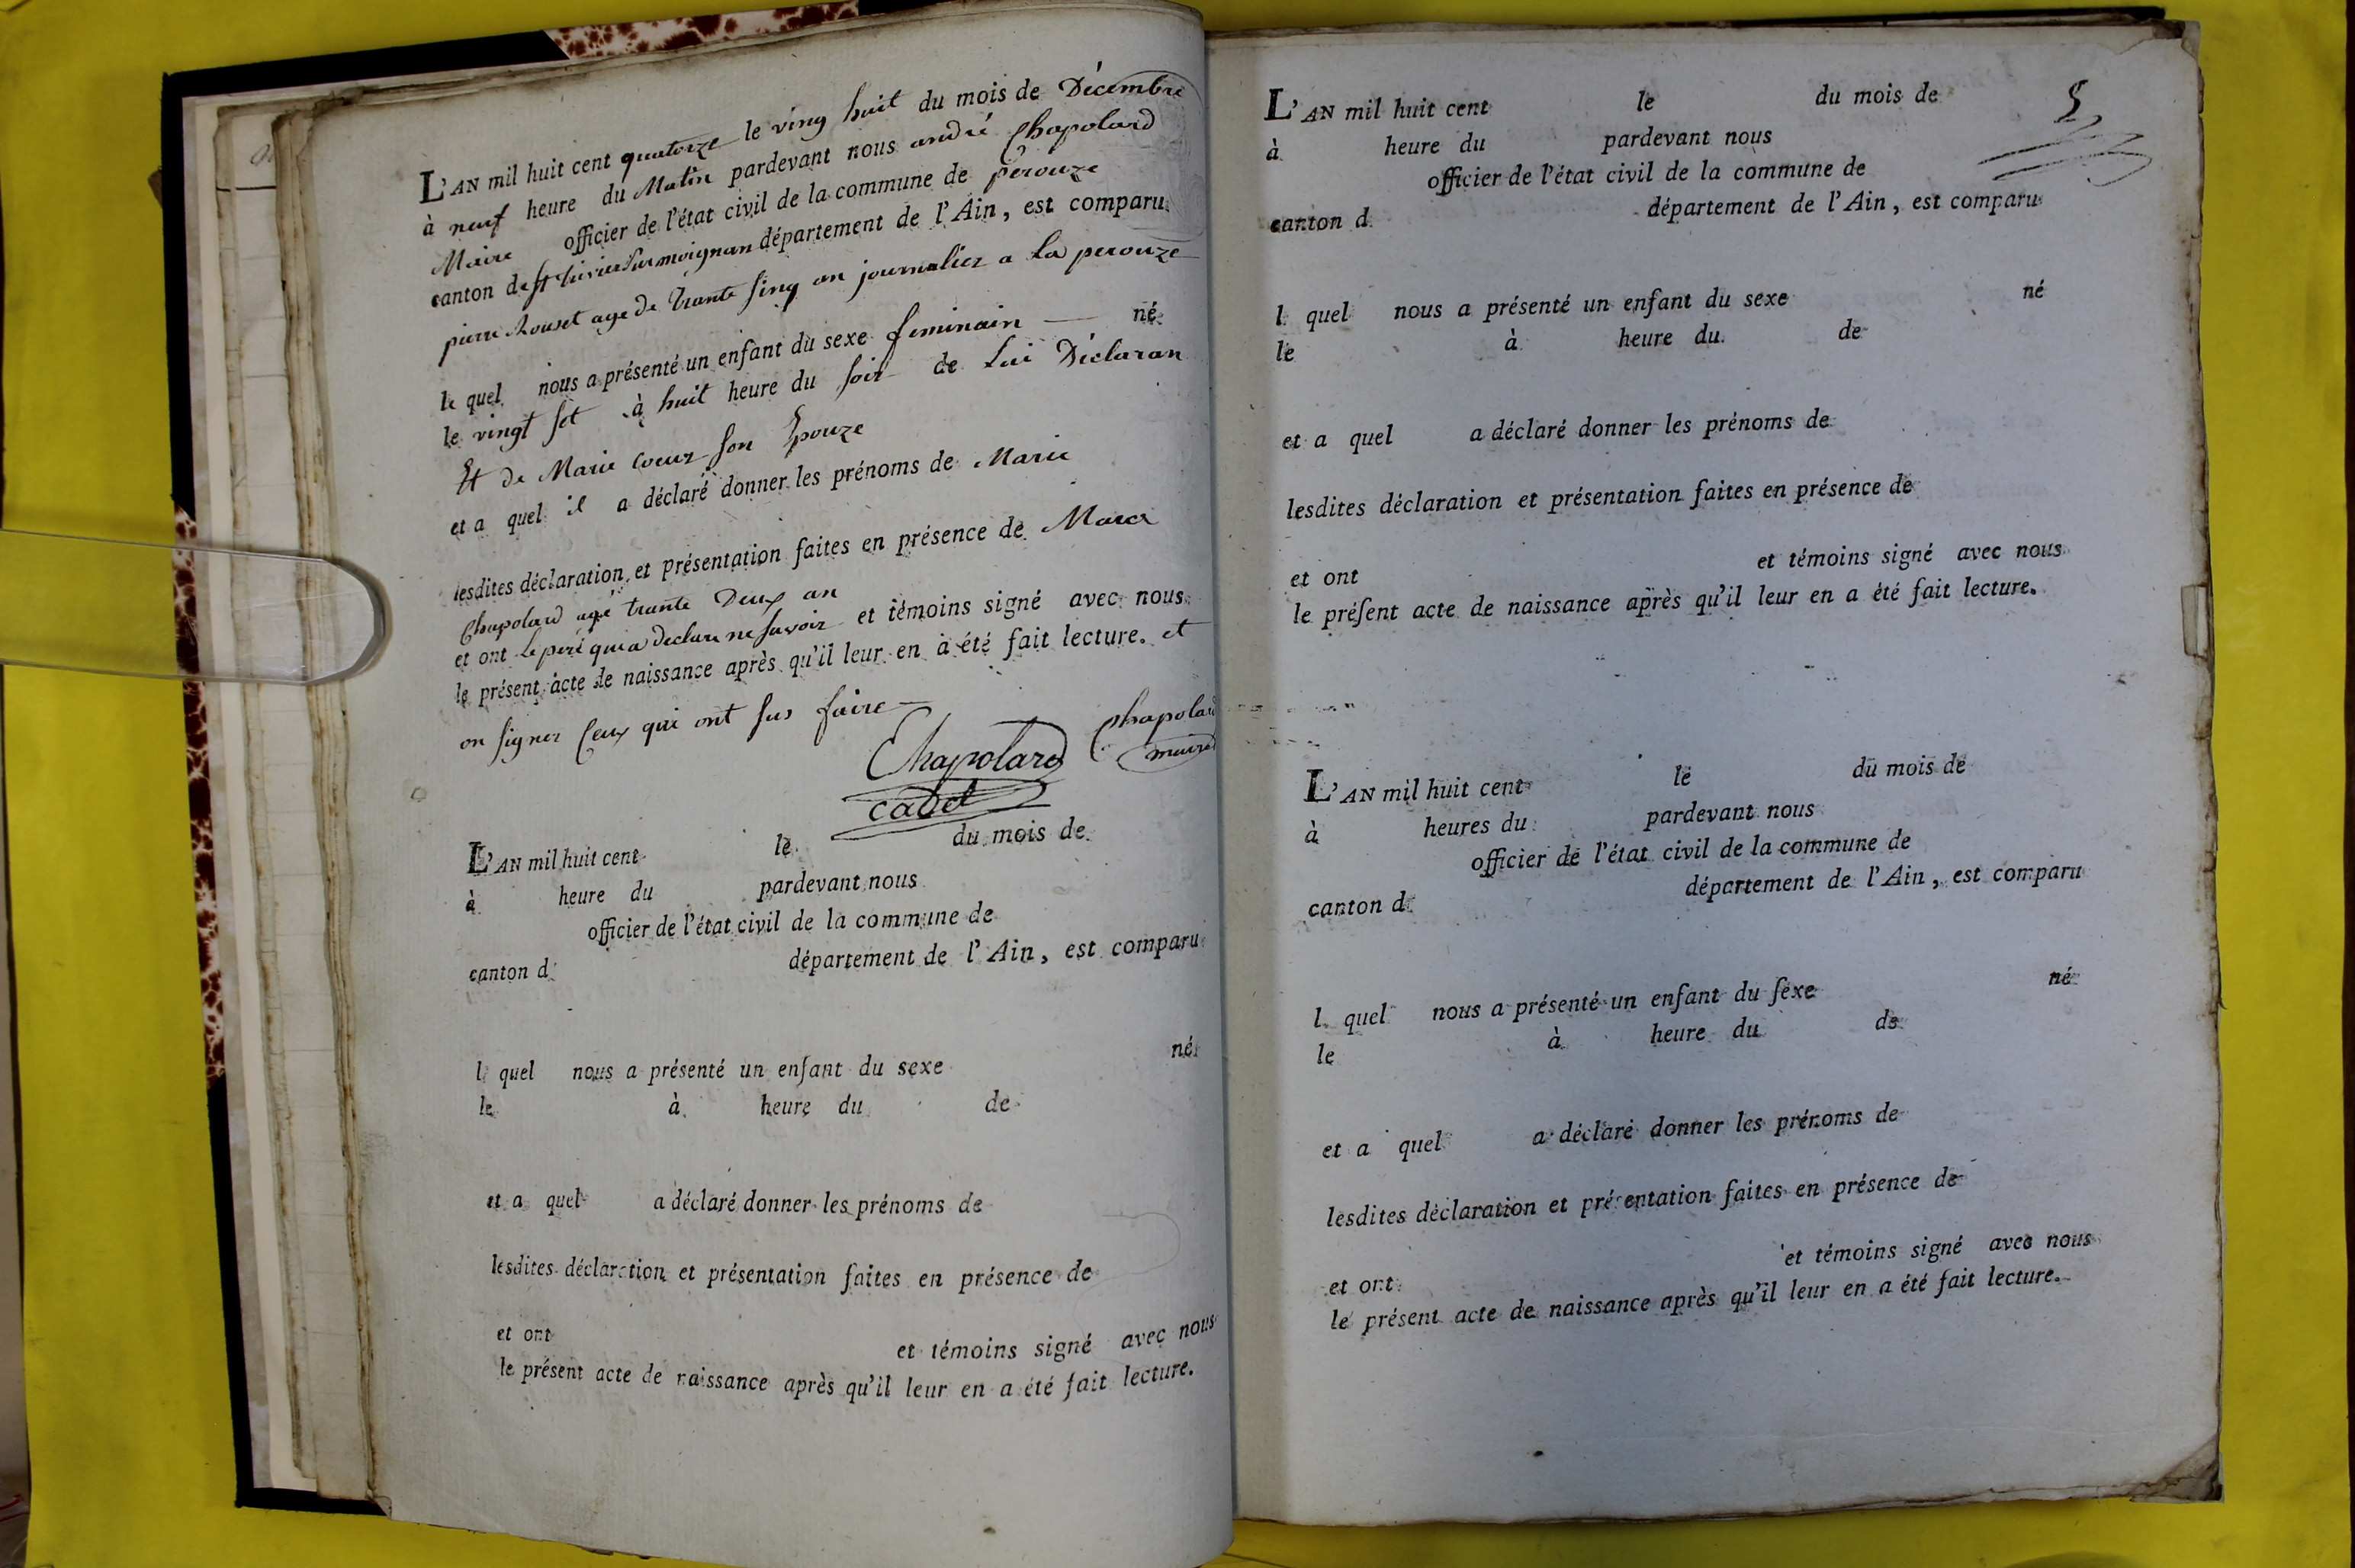 L'AN mil huit cent quatorze le ving huit du mois de Décembre
à neuf heure du Matin pardevant nous andré Chapolard
Maire officier de l'état civil de la commune de perouze
canton de département de l'Ain, est comparu
pierre Rouset age de trante sinq an journalier a la perouze
le quel nous a présenté un enfant du sexe feminain né
le vingt set à huit heure du soir de lui Déclaran
Et de Marie coeur son Epouze
et a quel il a déclaré donner les prénoms de Marie
lesdites déclaration et présentation faites en présence de Marer
Chapolard agé trante Deux an
et ont le peré qui a declare ne savoir et témoins signé avec nous
le présent acte de naissance après qu'il leur en a été fait lecture. et
on signer Ceux qui ont sus faire
Chapolard Chapolard
cadet maire
L'AN mil huit cent le du mois de
à heure du pardevant nous
officier de l'état civil de la commune de
canton d département de l'Ain, est comparu
l quel nous a présenté un enfant du sexe né
le à heure du de
et a quel a déclaré donner les prénoms de
lesdites déclaration et présentation faites en présence de
et ont et témoins signé avec nous
le présent acte de naissance après qu'il leur en a été fait lecture.
5
L'AN mil huit cent le du mois de
à heure du pardevant nous
officier de l'état civil de la commune de
canton d département de l'Ain, est comparu
l quel nous a présenté un enfant du sexe né
le à heure du de
et a quel a déclaré donner les prénoms de
lesdites déclaration et présentation faites en présence de
et ont et témoins signé avec nous
le préſent acte de naissance après qu'il leur en a été fait lecture.
L'AN mil huit cent le du mois de
à heures du pardevant nous
officier de l'état civil de la commune de
canton d département de l'Ain, est comparu
l quel nous a présenté un enfant du ſexe né
le à heure du de
et a quel a déclaré donner les prénoms de
lesdites déclaration et présentation faites en présence de
et ont et témoins signé avec nous
le présent acte de naissance après qu'il leur en a été fait lecture.